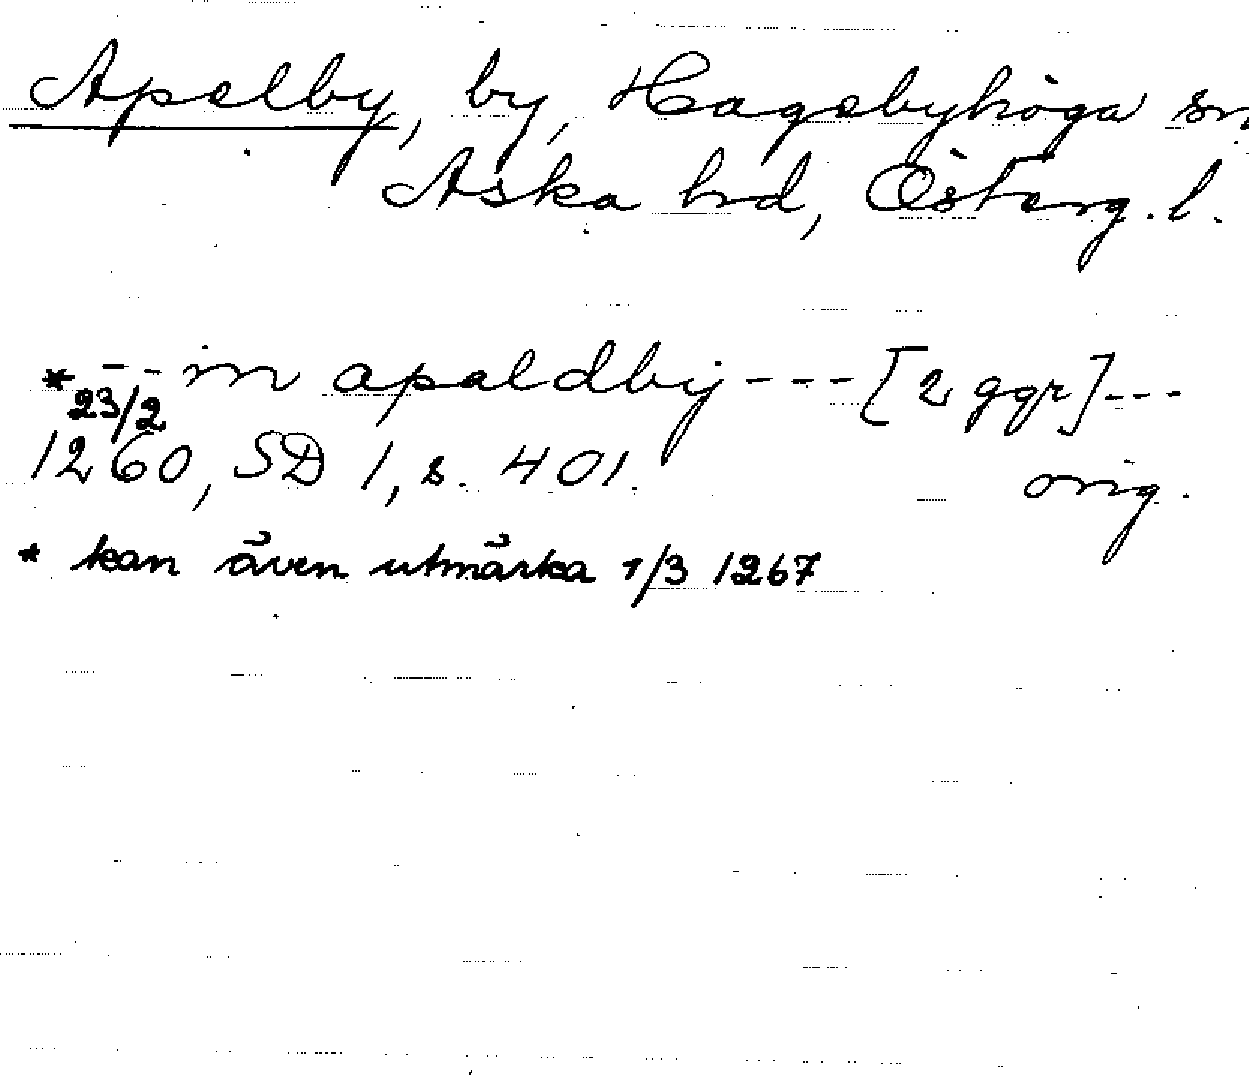 Apelby, by, Hagebyhöga sn
Aska hd, Österg. l.
*--- in apaldby --- [2 ggr] ---
23/2
1260, SD 1, s. 401. orig.
* kan även utmärka 1/3 1267